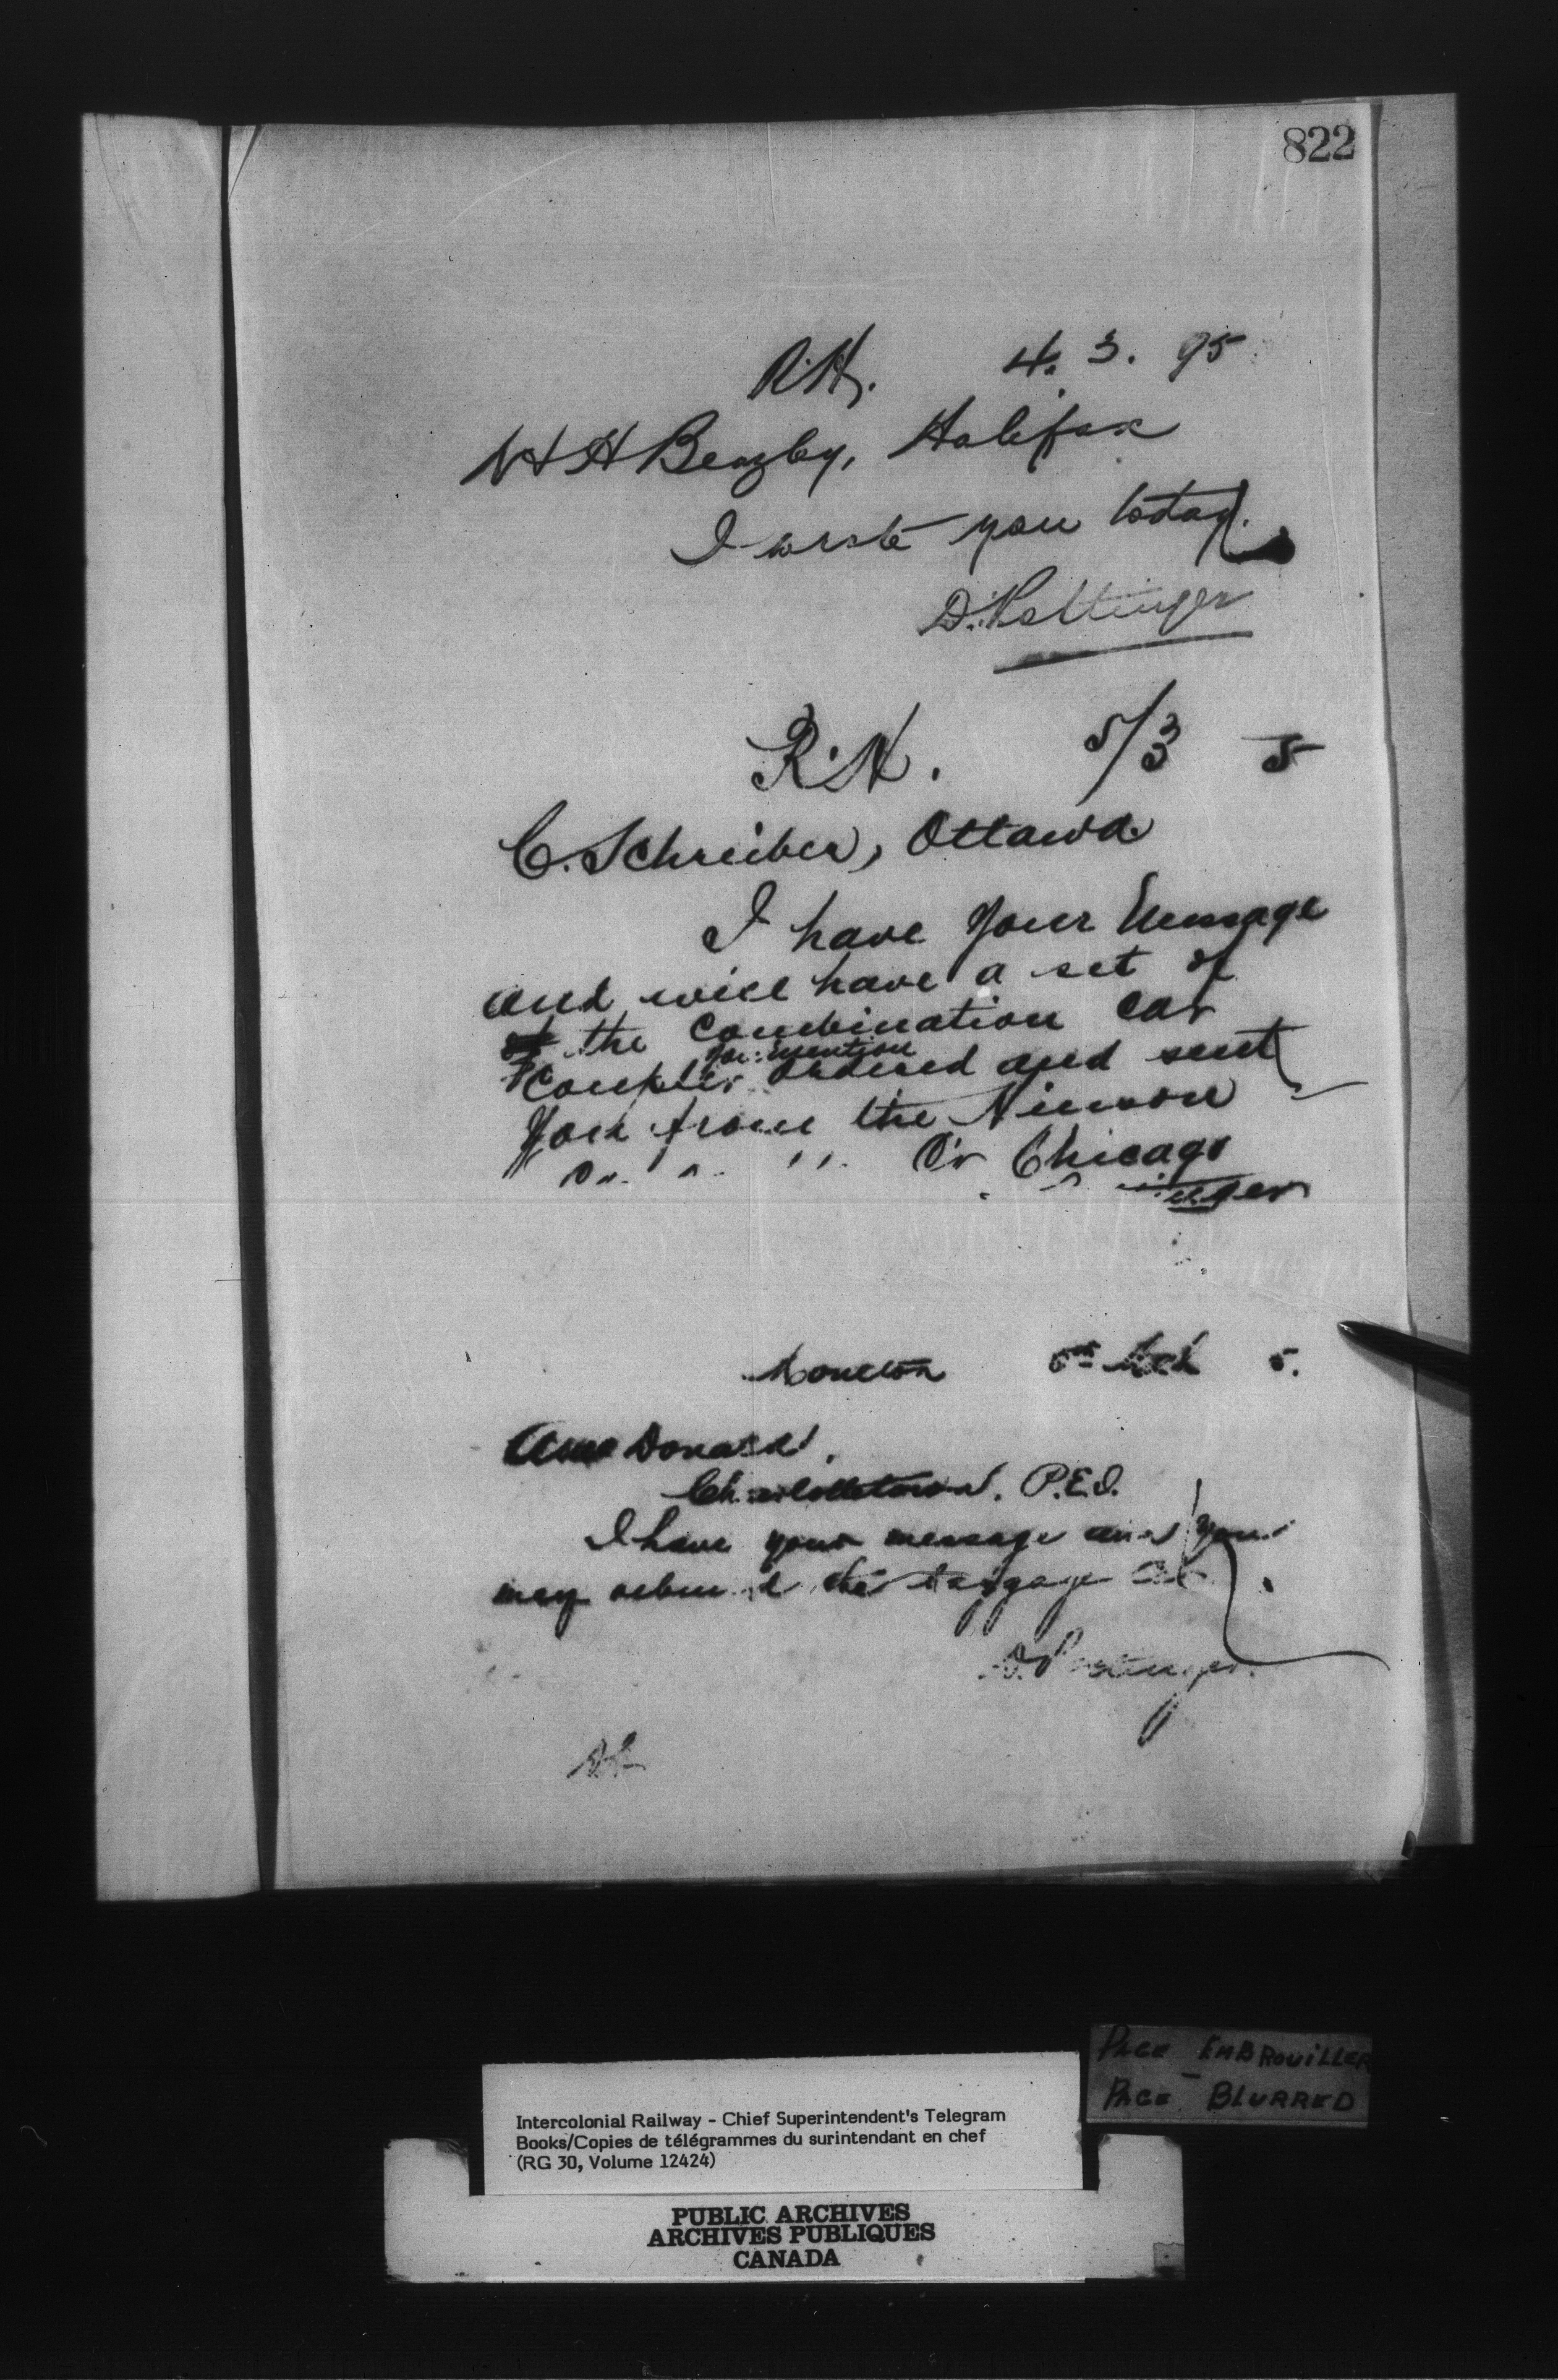 822
R.Y. 4. 3. 95
W H Beazley, Halifax
I wrote you today.
D. Pottinger
R.Y. 5/3 5
C. Schreiber, Ottawa
I have your message
and will have a set of
the combination car
you mention
coupler ordered and sent
you from the
Co. Chicago
inger
Moncton 5th Mch 5.
A McDonald,
Charlottetown. P.E.I.
I have your message and you
may the baggage
D. Pottinger
Page Embrouiller
Page Blurred
Intercolonial Railway - Chief Superintendent's Telegram
Books/Copies de télégrammes du surintendant en chef
(RG 30, Volume 12424)
PUBLIC ARCHIVES
ARCHIVES PUBLIQUES
CANADA